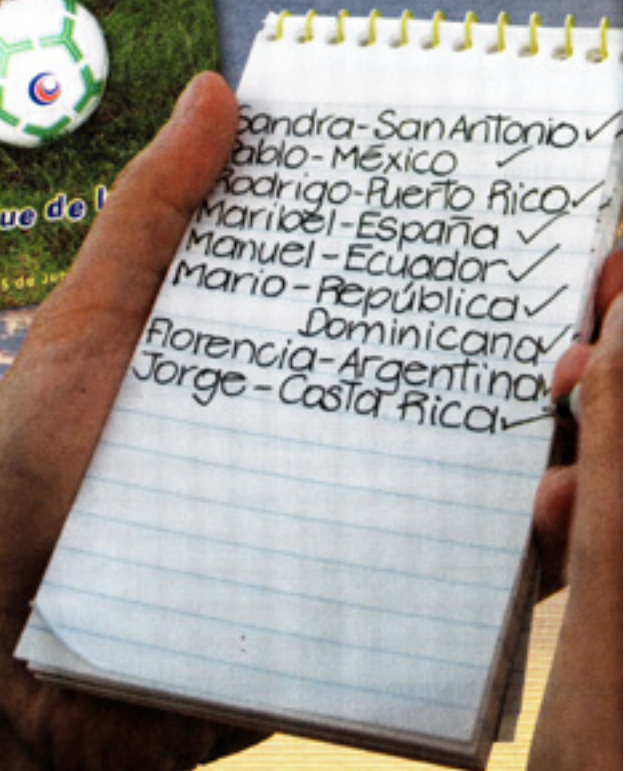 ue de l
5 de Ju
Sandra-San Antonio ✓
Pablo-México ✓
Rodrigo-Puerto Rico ✓
Maribel-España ✓
Manuel-Ecuador ✓
Mario-República ✓
Dominicana ✓
Florencia-Argentina ✓
Jorge-Costa Rica ✓